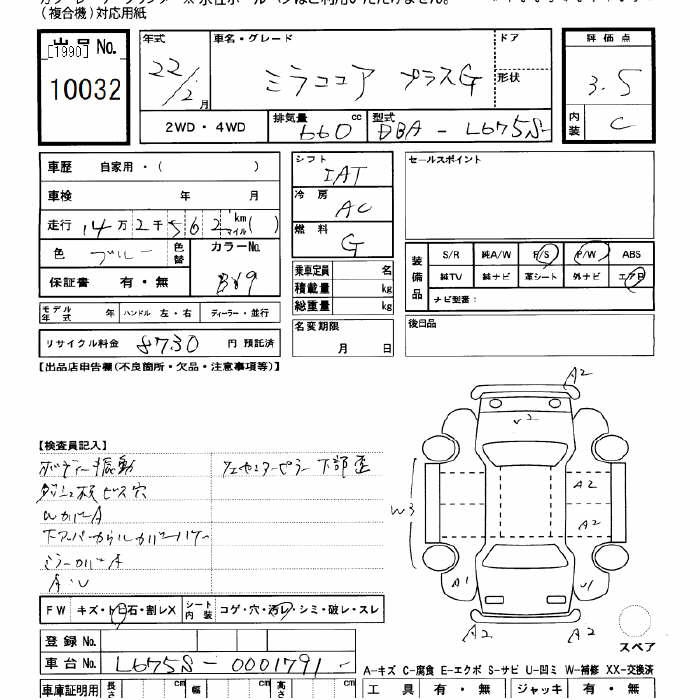 (複合機)対応用紙
出品No.
[1990]
10032
年式
22/12月
車名・グレード
ミラココア プラスG
ドア
形状
評価点
3.5
内装
C
2WD・4WD
排気量 660 cc
型式 DBA-L675S
車歴 自家用・( )
車検 年 月
走行 14万2千562 km マイル( )
色 ブルー
色替
カラーNo.
B59
保証書 有・無
シフト
IAT
冷房
AC
燃料
G
乗車定員 名
積載量 kg
総重量 kg
名変期限
月 日
セールスポイント
装備品
S/R 純A/W P/S P/W ABS
純TV 純ナビ 革シート 外ナビ エアB
ナビ型番:
後日品
モデル年式 年 ハンドル 左・右 ディーラー・並行
リサイクル料金 8730 円 預託済
【出品店申告欄(不良箇所・欠品・注意事項等)】
【検査員記入】
ボディー振動
ダッシュ板ビス穴
WカバーA
ミラーカバーA
A・U
下部歪
FW キズ・トビ石・割レX シート内装 コゲ・穴・汚レ・シミ・破レ・スレ
登録No.
車台No. L675S-0001791
車庫証明用 長さ cm 幅 cm 高さ cm
A2
U2
A2
A2
W3
A1
U1
A2
A2
スペア
A-キズ C-腐食 E-エクボ S-サビ U-凹ミ W-補修 XX-交換済
工具 有・無 ジャッキ 有・無